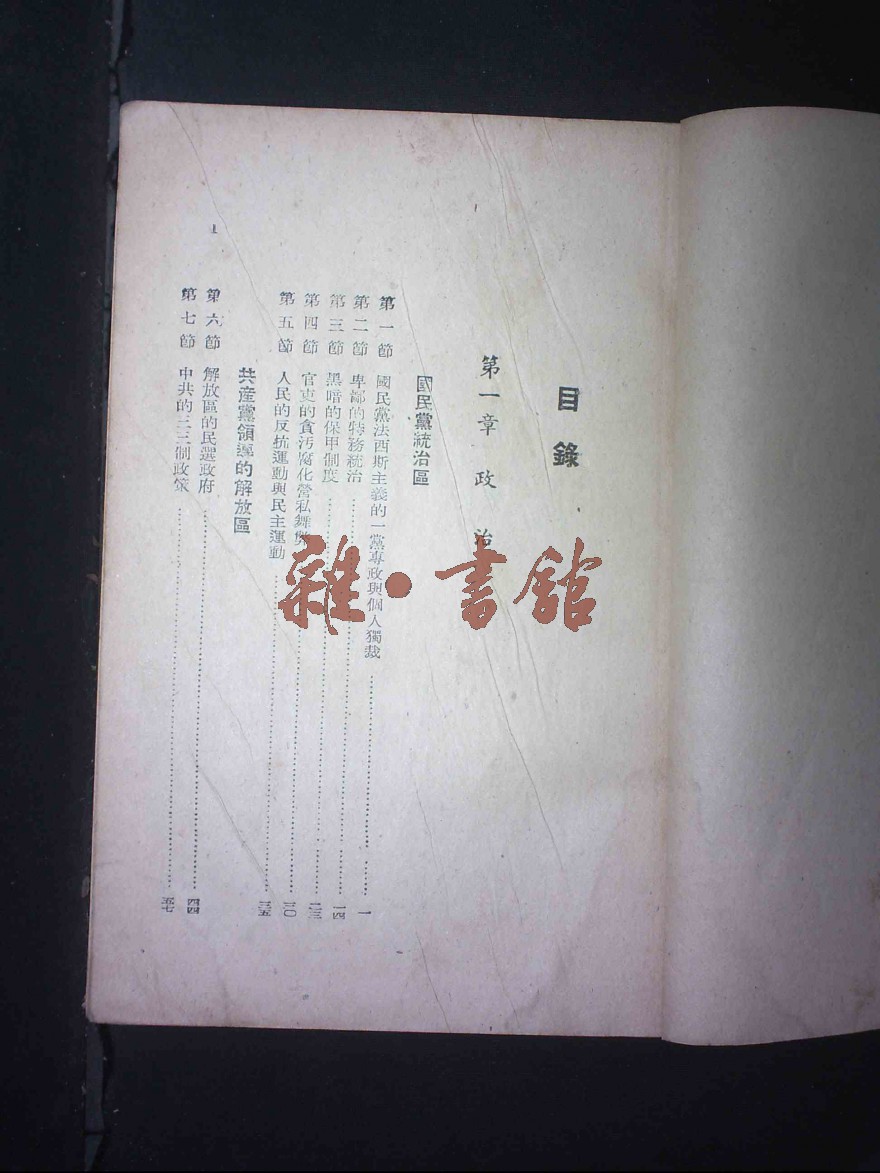 目錄
第一章 政 治
國民黨統治區
第一節 國民黨法西斯主義的一黨專政與個人獨裁 一
第二節 卑鄙的特務統治 一四
第三節 黑暗的保甲制度 二三
第四節 官吏的貪污腐化營私舞弊 三〇
第五節 人民的反抗運動與民主運動 三五
共產黨領導的解放區
第六節 解放區的民選政府 四四
第七節 中共的三三制政策 五七
雜·書館